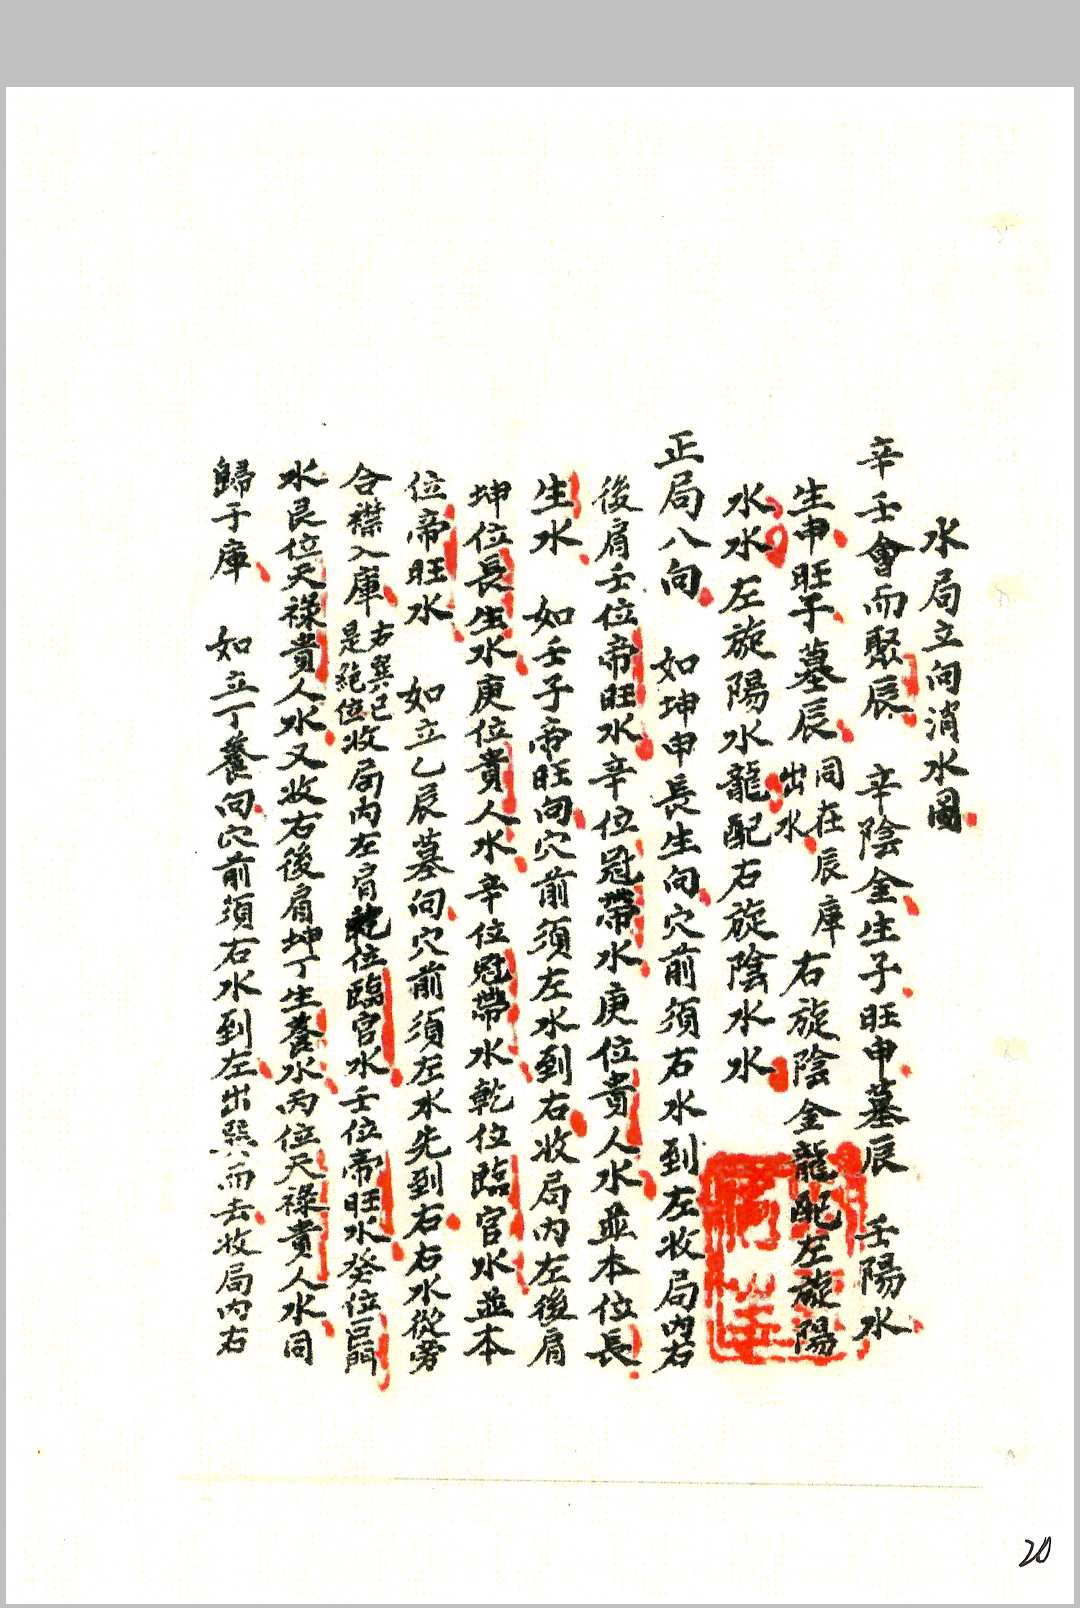 水局立向消水圖
辛壬會而聚辰　辛陰金生子旺申墓辰　壬陽水
生申旺子墓辰同在辰庫出水　右旋陰金龍配左旋陽
水水左旋陽水龍配右旋陰水水
正局八向　如坤申長生向穴前須右水到左收局內右
後肩壬位帝旺水辛位冠帶水庚位貴人水並本位長
生水　如壬子帝旺向穴前須左水到右收局內左後肩
坤位長生水庚位貴人水辛位冠帶水乾位臨官水並本
位帝旺水　如立乙辰墓向穴前須左水先到右右水從旁
合襟入庫右巽巳是絕位收局內左肩乾位臨官水壬位帝旺水癸位巨門
水艮位天祿貴人水又收右後肩坤丁生養水丙位天祿貴人水同
歸于庫　如立丁養向穴前須右水到左出巽而去收局內右
20